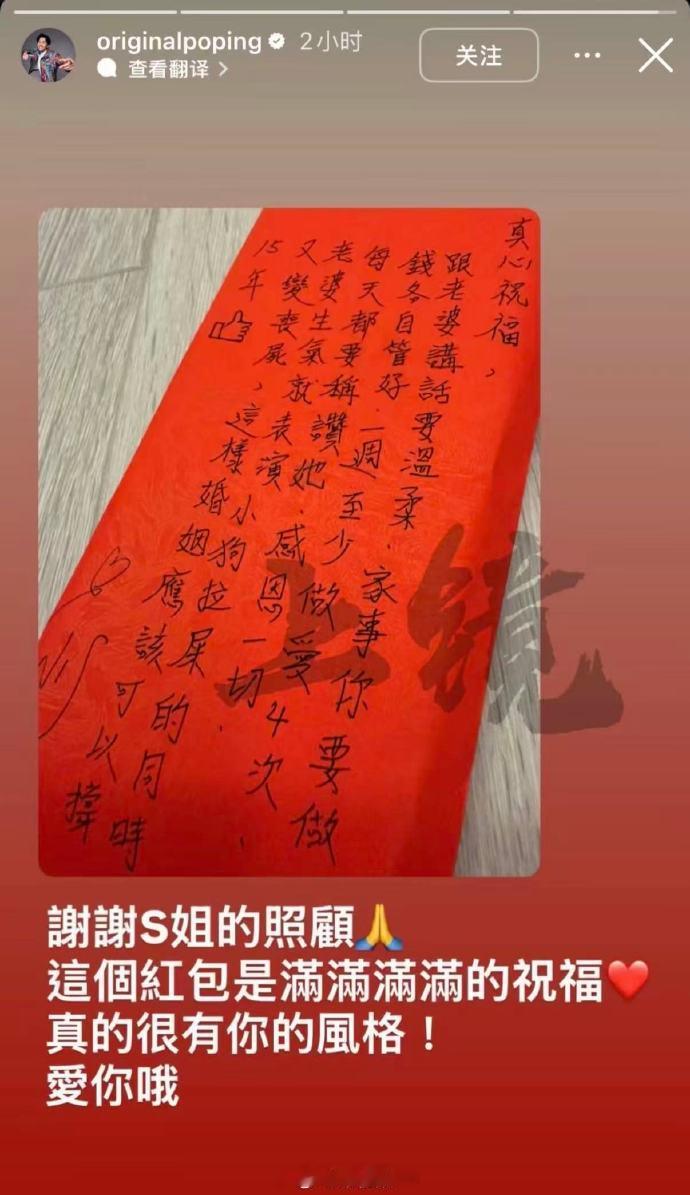 originalpoping 2小时
查看翻译
关注
真心祝福,
跟老婆講話要溫柔. 家事你要做
錢各自管好. 一週至少做愛4次,
每天都要稱讚她. 感恩一切.
老婆生氣就表演小狗拉屎的同時
又變喪屍, 這樣婚姻應該可以撐
15年
上镜
謝謝S姐的照顧🙏
這個紅包是滿滿滿滿的祝福❤️
真的很有你的風格！
愛你哦